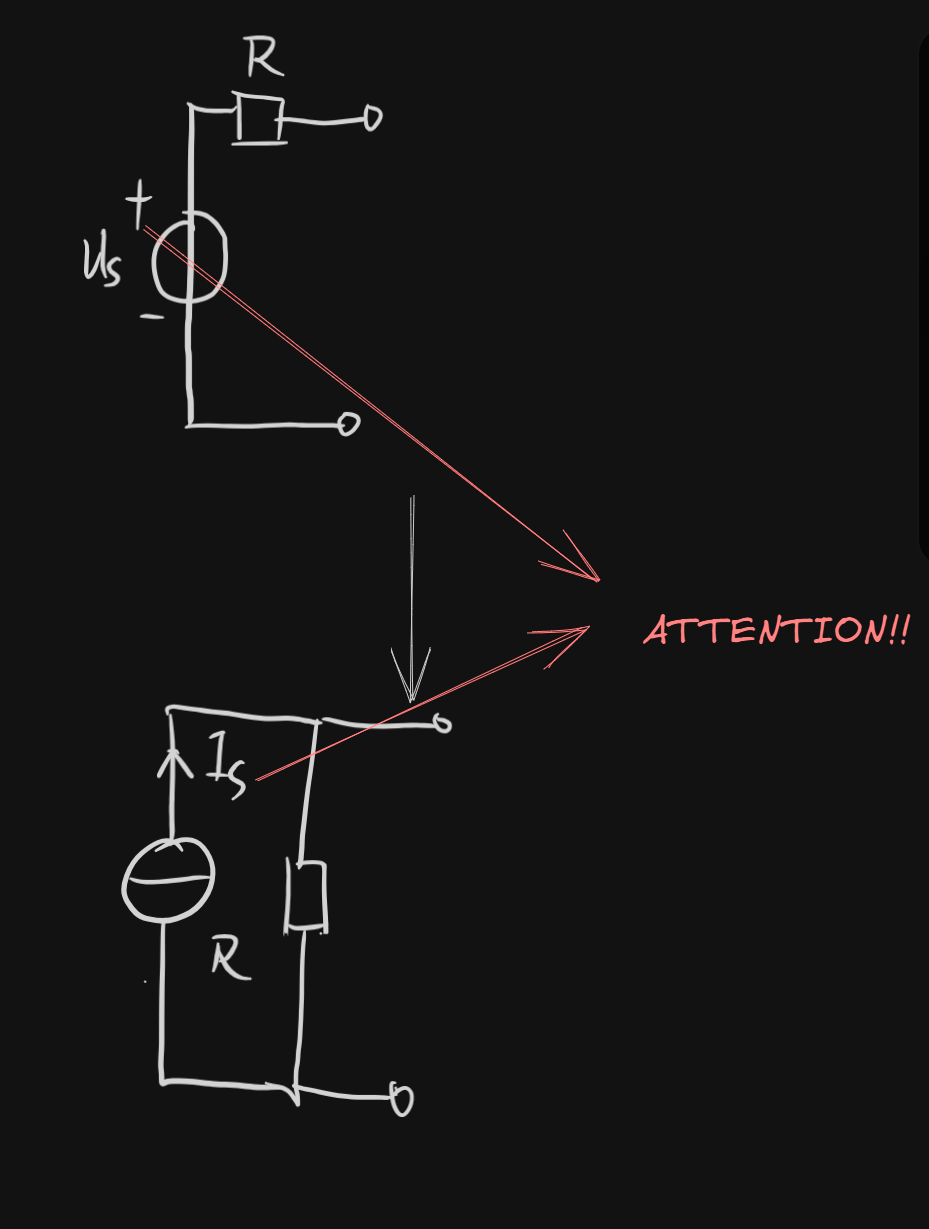 R
+
Us
-
ATTENTION!!
Is
R